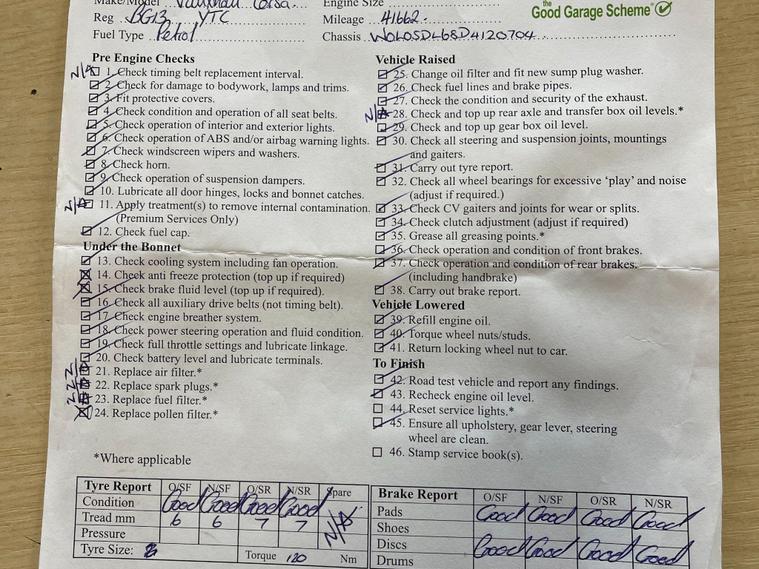 Make/Model Vauxhall Corsa. Engine Size
the Good Garage Scheme
Reg BG13 YTC Mileage 41662.
Fuel Type Petrol Chassis W0L0SDL68D4120704
Pre Engine Checks
N/A 1. Check timing belt replacement interval.
2. Check for damage to bodywork, lamps and trims.
3. Fit protective covers.
4. Check condition and operation of all seat belts.
5. Check operation of interior and exterior lights.
6. Check operation of ABS and/or airbag warning lights.
7. Check windscreen wipers and washers.
8. Check horn.
9. Check operation of suspension dampers.
10. Lubricate all door hinges, locks and bonnet catches.
N/A 11. Apply treatment(s) to remove internal contamination.
(Premium Services Only)
12. Check fuel cap.
Under the Bonnet
13. Check cooling system including fan operation.
14. Check anti freeze protection (top up if required)
15. Check brake fluid level (top up if required).
16. Check all auxiliary drive belts (not timing belt).
17. Check engine breather system.
18. Check power steering operation and fluid condition.
19. Check full throttle settings and lubricate linkage.
20. Check battery level and lubricate terminals.
21. Replace air filter.*
22. Replace spark plugs.*
23. Replace fuel filter.*
24. Replace pollen filter.*
*Where applicable
Vehicle Raised
25. Change oil filter and fit new sump plug washer.
26. Check fuel lines and brake pipes.
27. Check the condition and security of the exhaust.
N/A 28. Check and top up rear axle and transfer box oil levels.*
29. Check and top up gear box oil level.
30. Check all steering and suspension joints, mountings
and gaiters.
31. Carry out tyre report.
32. Check all wheel bearings for excessive ‘play’ and noise
(adjust if required.)
33. Check CV gaiters and joints for wear or splits.
34. Check clutch adjustment (adjust if required)
35. Grease all greasing points.*
36. Check operation and condition of front brakes.
37. Check operation and condition of rear brakes.
(including handbrake)
38. Carry out brake report.
Vehicle Lowered
39. Refill engine oil.
40. Torque wheel nuts/studs.
41. Return locking wheel nut to car.
To Finish
42. Road test vehicle and report any findings.
43. Recheck engine oil level.
44. Reset service lights.*
45. Ensure all upholstery, gear lever, steering
wheel are clean.
46. Stamp service book(s).
Tyre Report O/SF N/SF O/SR N/SR Spare
Condition Good Good Good Good N/A
Tread mm 6 6 7 7
Pressure
Tyre Size: Torque 120 Nm
Brake Report O/SF N/SF O/SR N/SR
Pads Good Good Good Good
Shoes
Discs Good Good Good Good
Drums